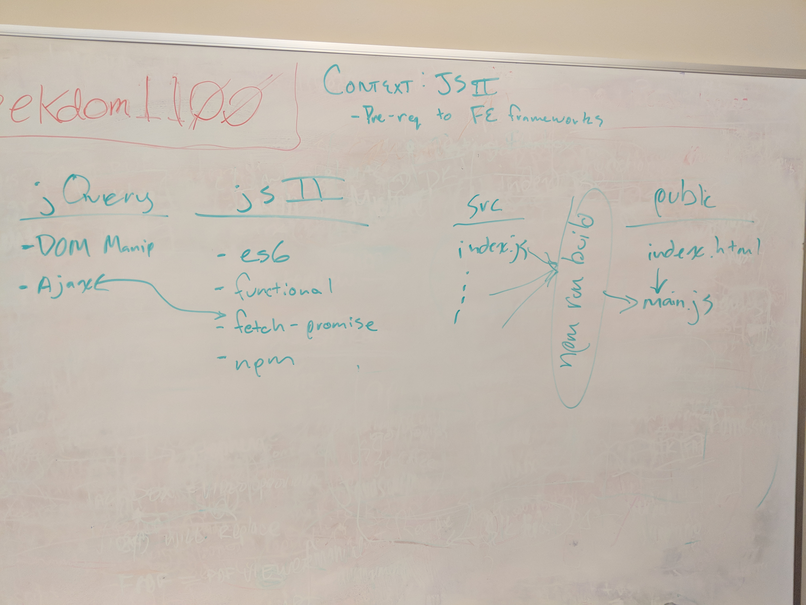 ekdom1100
CONTEXT: JS II
- Pre-req to FE frameworks
jQuery
- DOM Manip
- Ajax
js II
- es6
- functional
- fetch-promise
- npm
src
index.js
npm run build
public
index.html
main.js